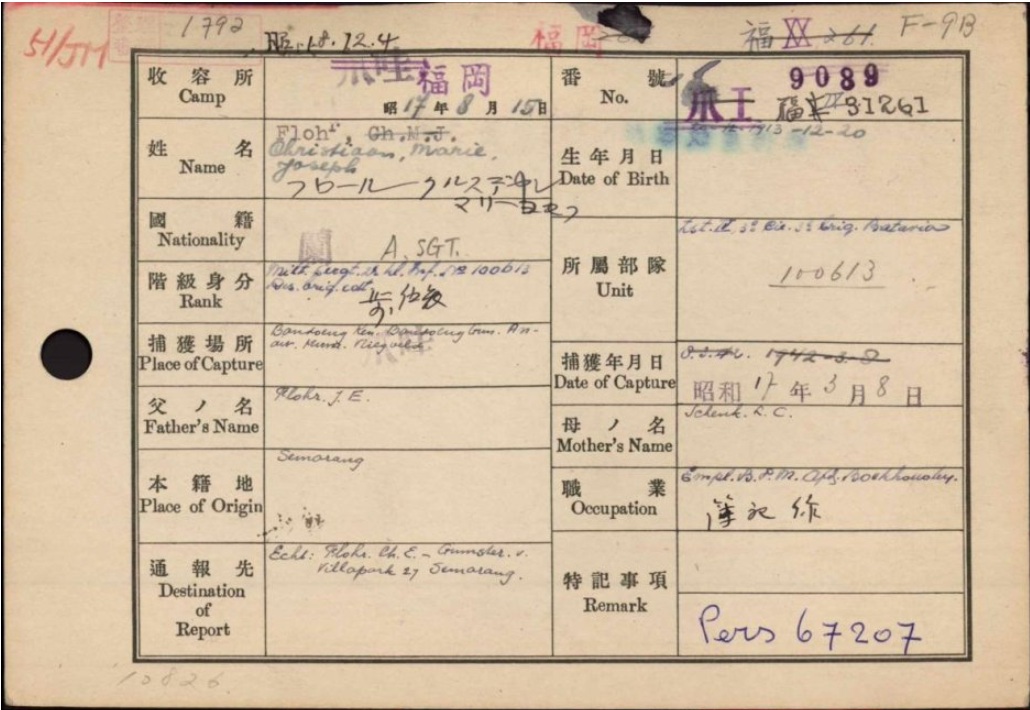 1792
昭18.12.4
福岡
福 XX 261. F-9B
51/JM
收容所
Camp
爪哇 福岡
昭17年8月15日
番號
No.
9089
爪 I 福 31261
姓名
Name
Flohr, Ch.M.J.
Christiaan, Marie,
Joseph
フロール クルスデヤン
マリーヨセフ
生年月日
Date of Birth
1913-12-20
國籍
Nationality
蘭 A. SGT.
所屬部隊
Unit
Batavia
100613
階級身分
Rank
100613
捕獲場所
Place of Capture
Bandoeng
捕獲年月日
Date of Capture
1942-3-8
昭和17年3月8日
父ノ名
Father's Name
Flohr. J. E.
母ノ名
Mother's Name
Schenk. L. C.
本籍地
Place of Origin
Semarang
職業
Occupation
Empl. B.P.M. Afd. Boekhouding.
簿記係
通報先
Destination
of
Report
Echt: Flohr. Ch. E. –
Villapark 27 Semarang.
特記事項
Remark
Pers 67207
10826.